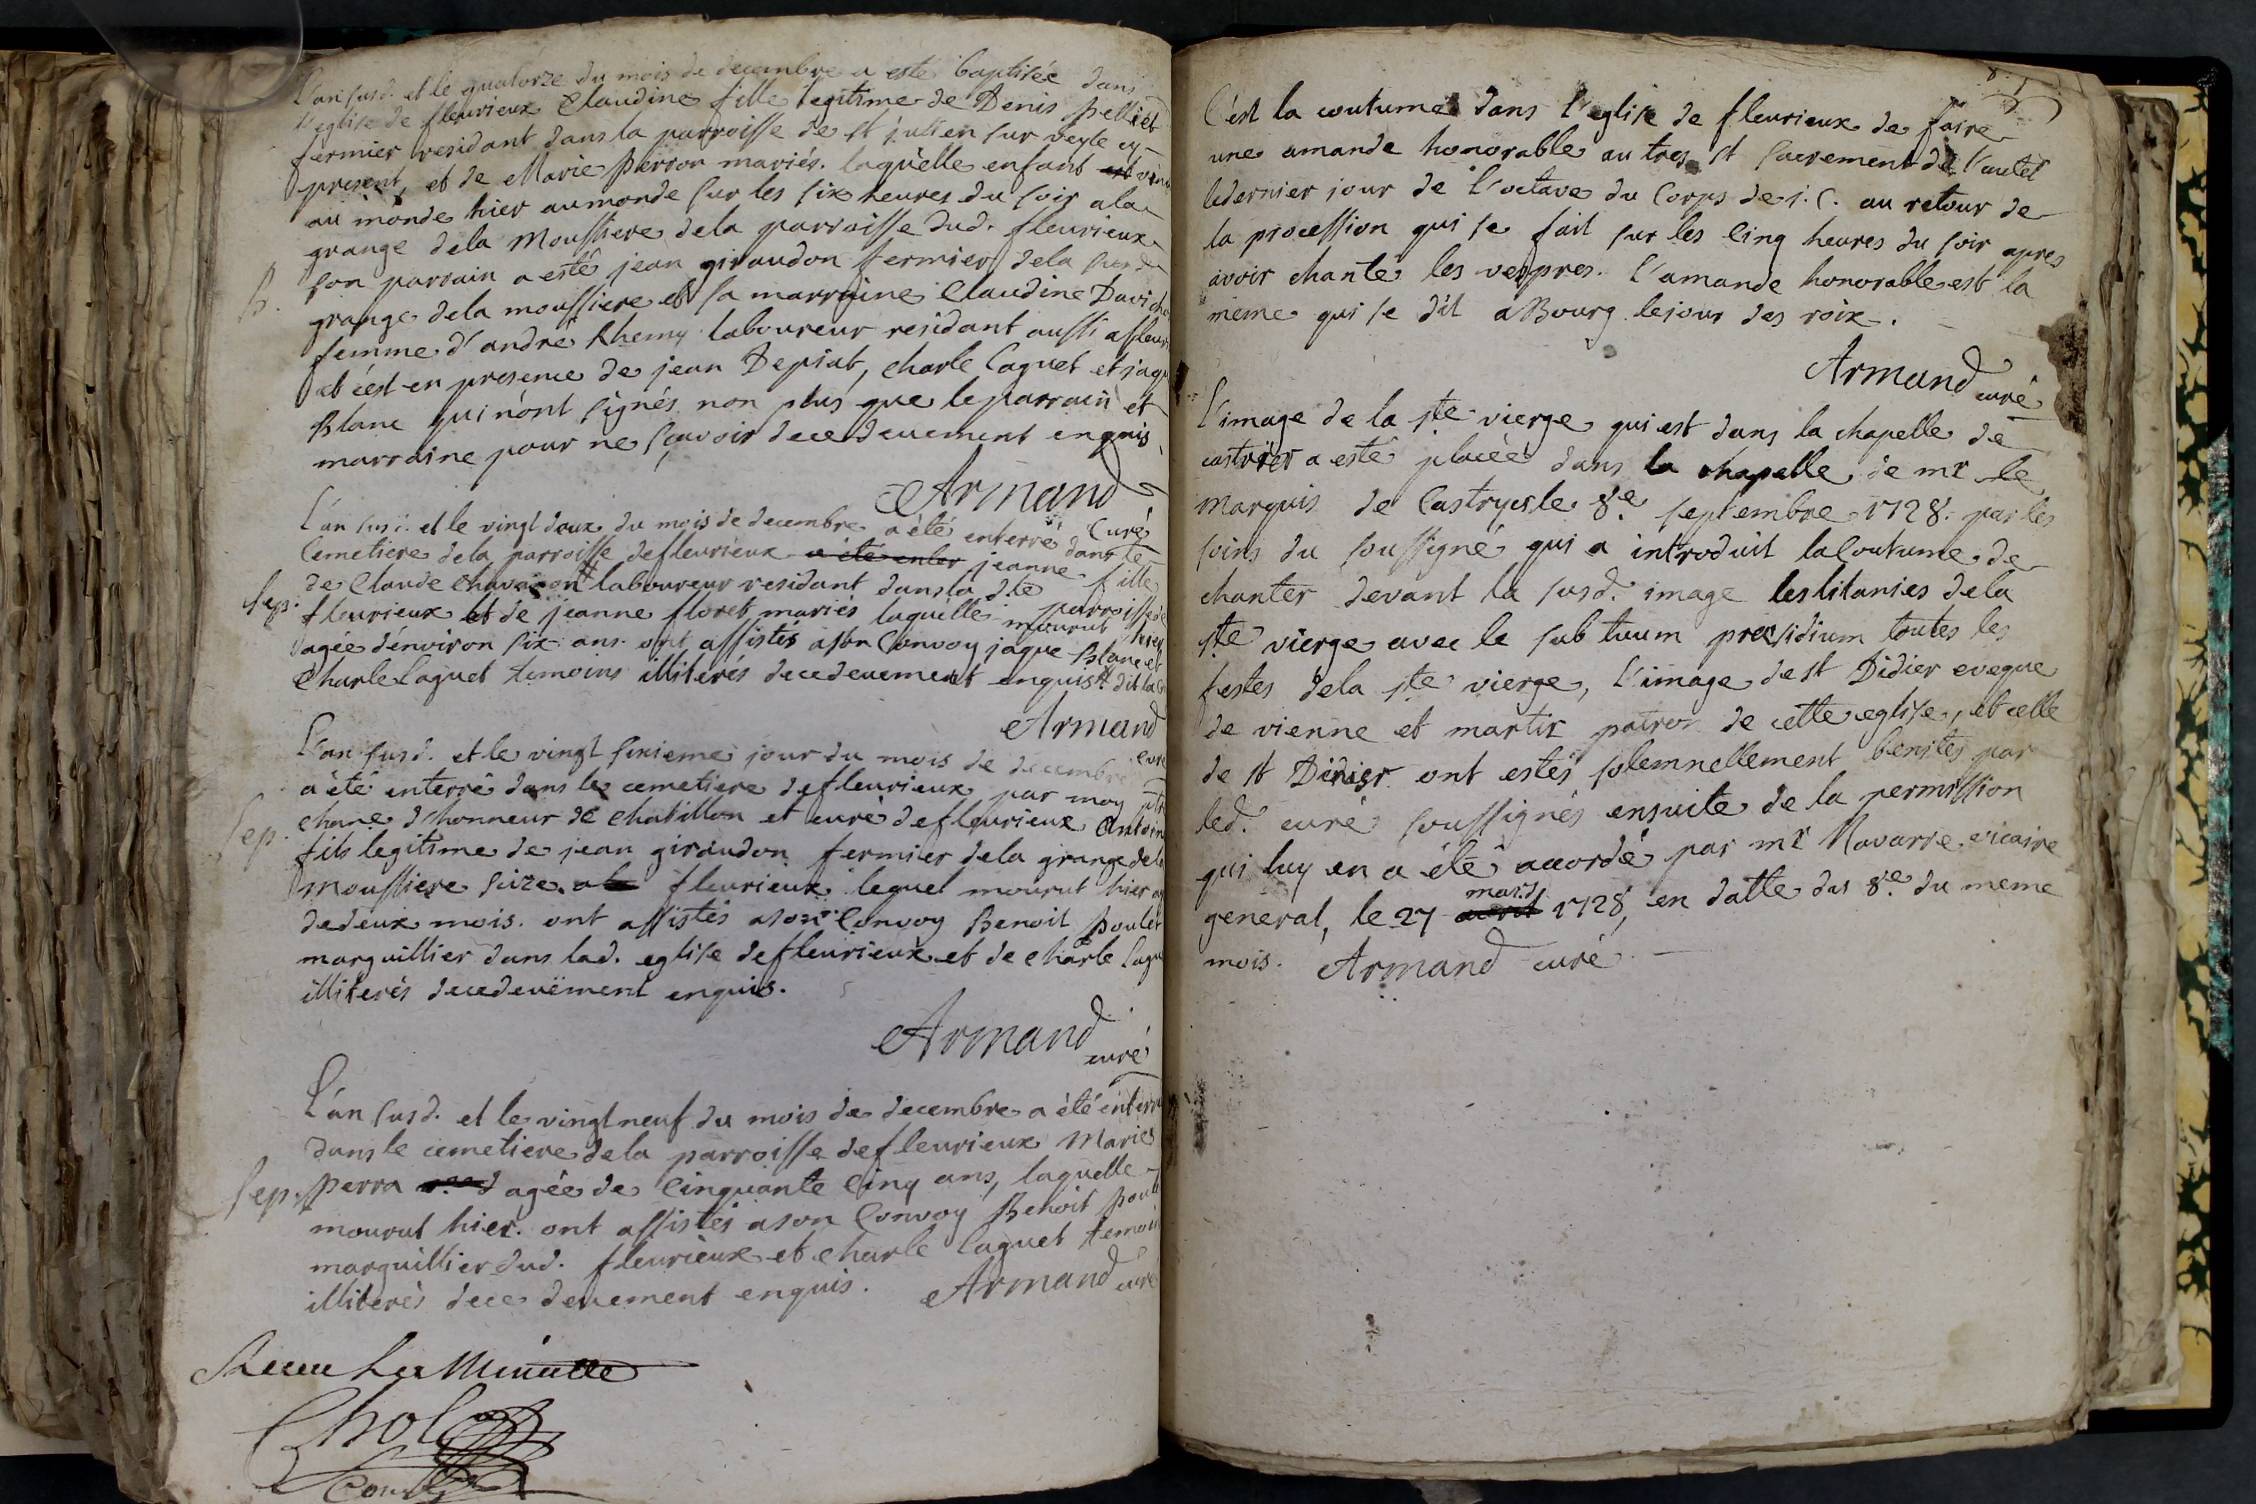 L'an susd. et le quatorze du mois de decembre a esté baptisée dans
l'eglise de fleurieux Claudine fille legitime de Denis pelliet
fermier residant dans la parroisse de st julien sur veyle cy
present, et de Marie perron mariés. laquelle enfant est
au monde hier au monde sur les six heures du soir a la
grange dela Moussiere dela parroisse dud. fleurieux
son parrain a esté jean giraudon fermier dela susd.
B.
grange dela moussiere et sa marraine Claudine
femme d'andré Rhemy laboureur residant aussi a
et c'est en presence de jean Depiat, charle Caguet et
Blanc qui n'ont signés non plus que le parrain et
marraine pour ne sçavoir de ce deuement enquis
Armand
Curé
L'an susd. et le vingt deux du mois de decembre a été enterré dans le
Cemetiere dela parroisse de fleurieux a été enter jeanne fille
de Claude laboureur residant dans la dte parroisse de
Sep.
fleurieux et de jeanne floret mariés laquelle mourut hier
agée d'environ six ans. ont assistés a son Convoy jaque Blanc et
Charle Caguet temoins illiterés de ce deuement enquis
Armand
curé
L'an susd. et le vingt sixieme jour du mois de decembre
a été enterré dans le cemetiere de fleurieux par moy
chane d'honneur de chatillon et curé de fleurieux
Sep.
fils legitime de jean giraudon fermier dela grange dela
Moussiere size a fleurieux lequel mourut hier
de deux mois. ont assistés a son Convoy Benoit poulet
marguillier dans lad. eglise de fleurieux et de charle
illiterés de ce deuëment enquis.
Armand
curé
L'an susd. et le vingt neuf du mois de decembre a été
dans le cemetiere dela parroisse de fleurieux Marie
Sep.
perra agée de Cinquante Cinq ans, laquelle
mourut hier. ont assistés a son Convoy Benoit
marguillier dud. fleurieux et charle Caguet
illiterés de ce deuement enquis. Armand curé
Receu La Minutte
Chol
C'est la coutume dans l'eglise de fleurieux de faire
une amande honorable au tres st sacrement de l'autel
le dernier jour de l'octave du Corps de j. C. au retour de
la procession qui se fait sur les Cinq heures du soir apres
avoir chanté les vespres. l'amande honorable est la
meme qui se dit a Bourg le jour des roix.
Armand curé
L'image de la ste vierge qui est dans la chapelle de
a esté placée dans la chapelle de mr le
Marquis de Castrys le 8e septembre 1728. par les
soins du soussigné qui a introduit la Coutume de
chanter devant la susd. image les litanies dela
ste vierge avec le sub tuum praesidium toutes les
festes dela ste vierge, l'image de st Didier eveque
de vienne et martir patron de cette eglise, et celle
de st Didier ont estés solemnellement benites par
led. curé soussignés ensuite de la permission
qui luy en a été accordé par mr Navarre vicaire
mars
general, le 27 avril 1728, en datte du 8e du meme
mois. Armand curé